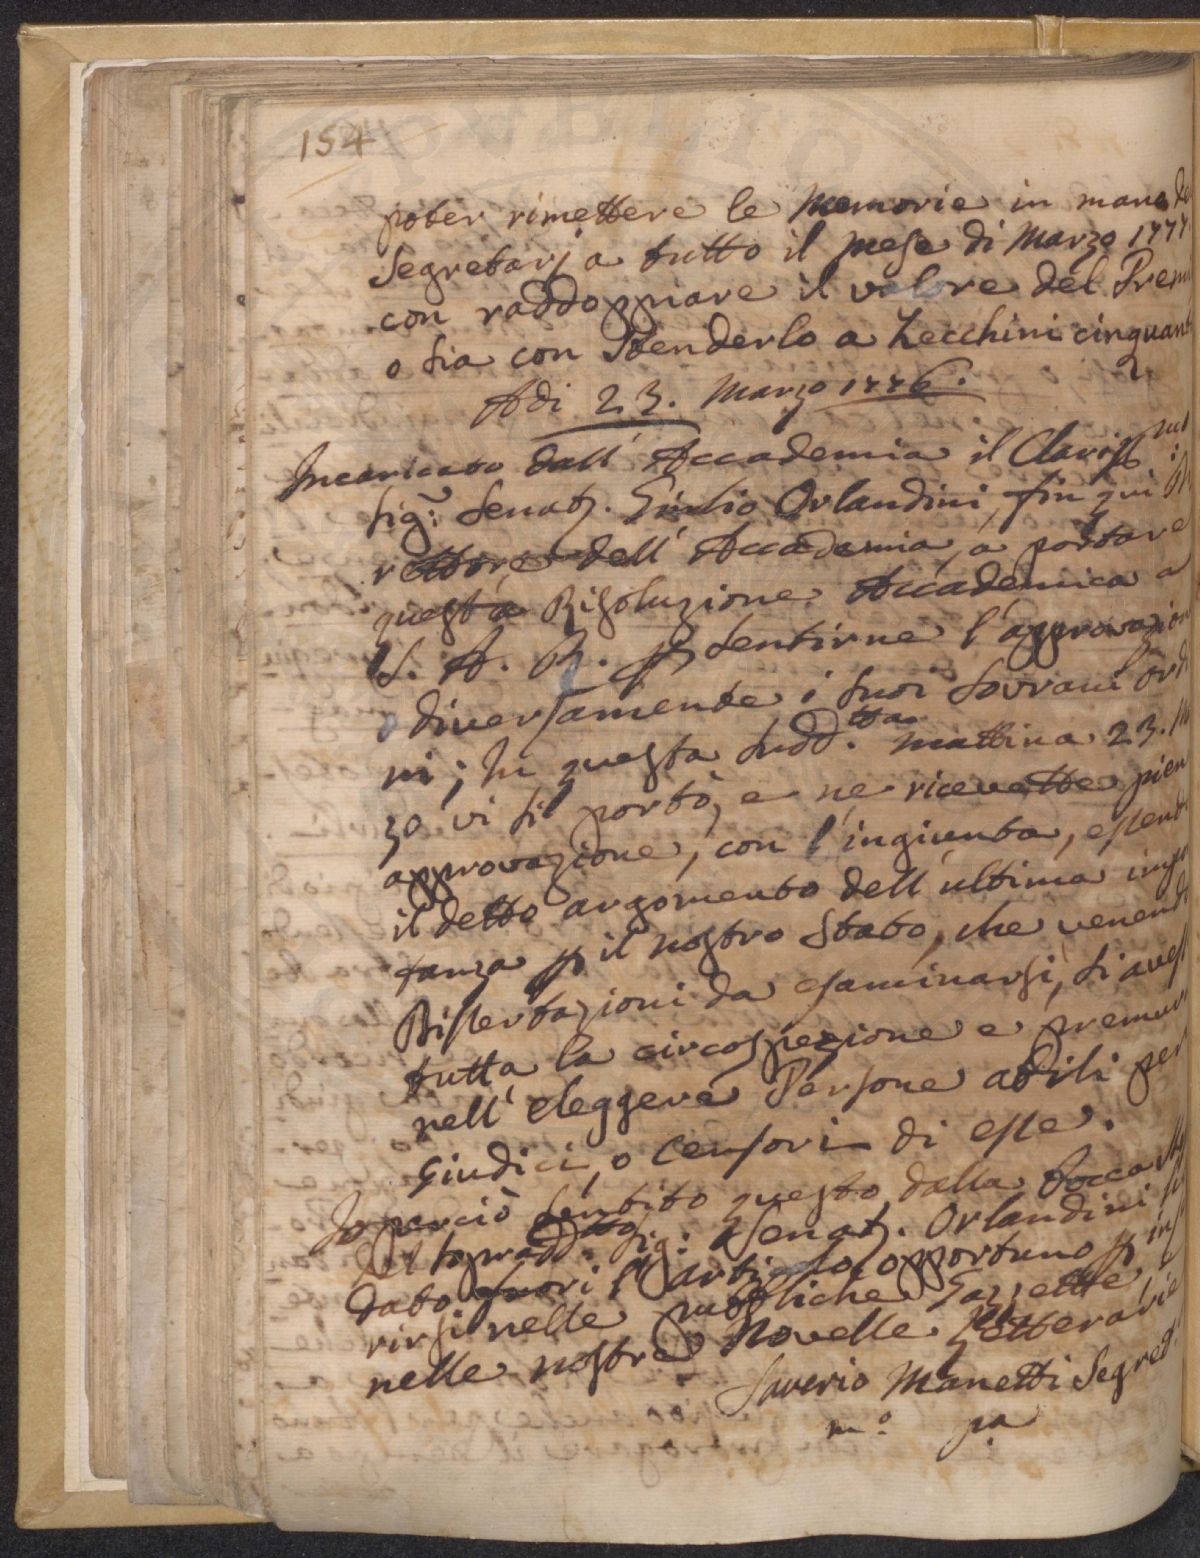 154
poter rimettere le Memorie in mano de
Segretarj a tutto il Mese di Marzo 1777
con raddoppiare il valore del Premi
o sia con Stenderlo a Zecchini cinquant
Adi 23. Marzo 1776.
Incaricato dall' Accademia il Clariss
Sig: Senat. Giulio Orlandini, fin qui
rettore dell' Accademia, a portare
questa Risoluzione Accademica a
S. A. R. p sentirne l'approvazion
o diversamente i suoi Sovrani Ord
ni; In questa sudd.tta mattina 23. M
zo vi si portò, e ne ricevette pien
approvazione, con l'ingiunta, essend
il detto argomento dell' ultima impo
tanza p il nostro Stato, che venend
Dissertazioni da esaminarsi, si avess
tutta la circospezione e premur
nell' eleggere Persone abili per
Giudici, o Censori di esse.
Io perciò sentito questo dalla bocca st
del sopradd.to Sig: Senat. Orlandini
dato fuori l'articolo opportuno p ins
rirsi nelle pubbliche Gazzette
nelle nostre Novelle Letterarie
Saverio Manetti Segret
m.o pa